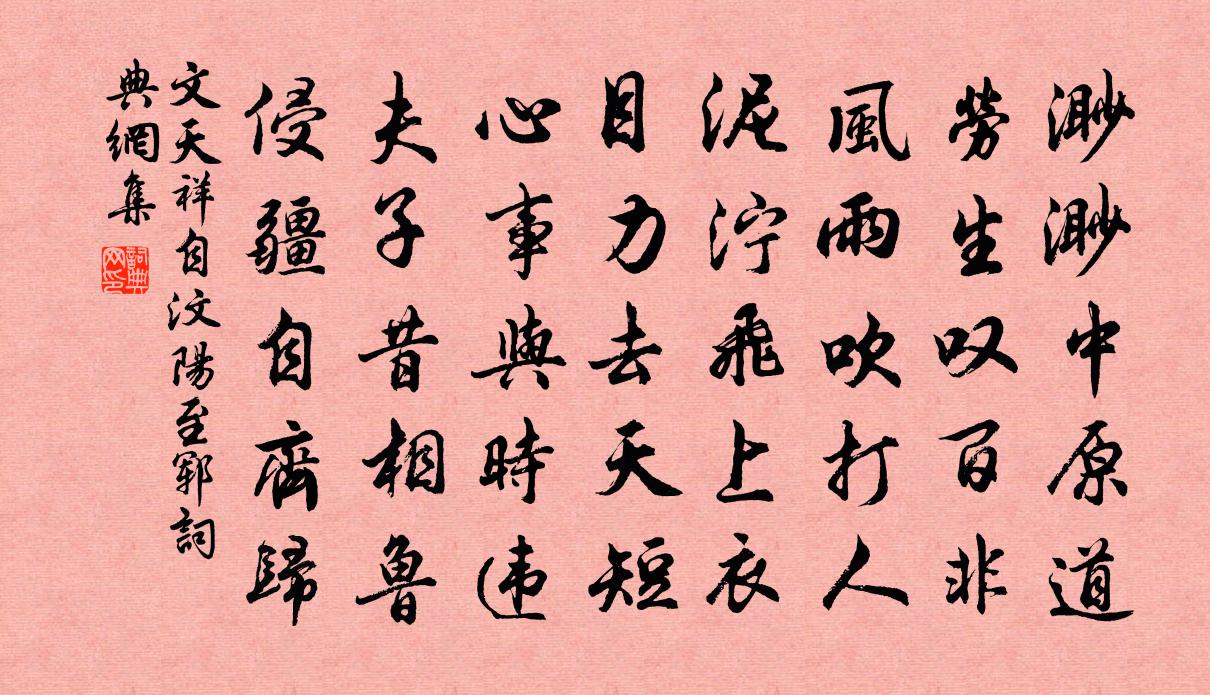 渺渺中原道
勞生叹百非
風雨吹打人
泥泞飛上衣
目力去天短
心事與時违
夫子昔相魯
侵疆自齊歸
文天祥自汶陽至鄆詞
典網集
詞典
网印